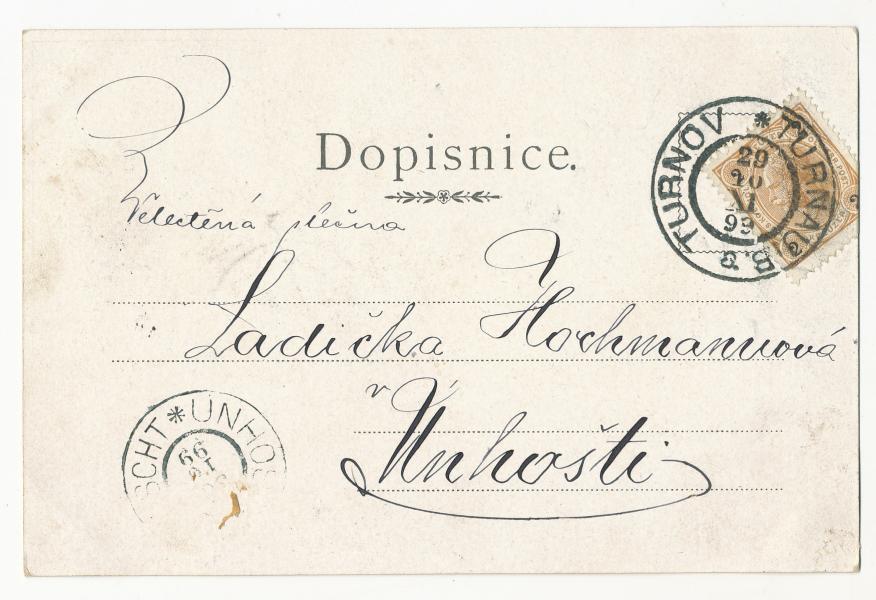 Dopisnice.
TURNOV * TURNAU
29
10
11
99
Velectěná slečna
Ladička Hochmannová
v
Únhošti
SCHT * UNHO
99